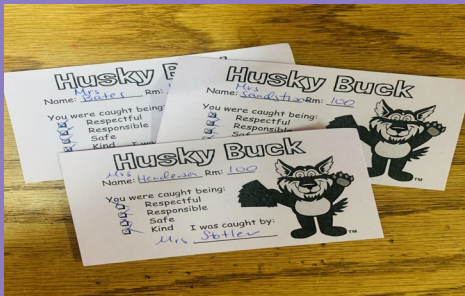 Husky B
Mrs
Name: Bates Rm:
You were caught being:
Respectful
Responsible
Safe
Kind I wa
Husky Buck
Mrs
Name: Rm: 100
You were caught being:
Respectful
Responsible
Saf
Husky Buck
Mrs
Name: Henderson Rm: 100
You were caught being:
Respectful
Responsible
Safe
Kind I was caught by:
Mrs Sotler
TM
TM